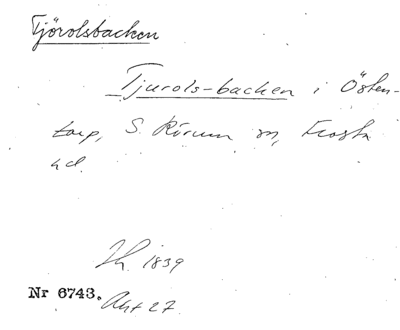 Tjörolsbacken
Tjurols-backen i Östen-
torp, S. Rörum sn, Frosta
hd.
Th. 1839
Nr 6743. Akt 27